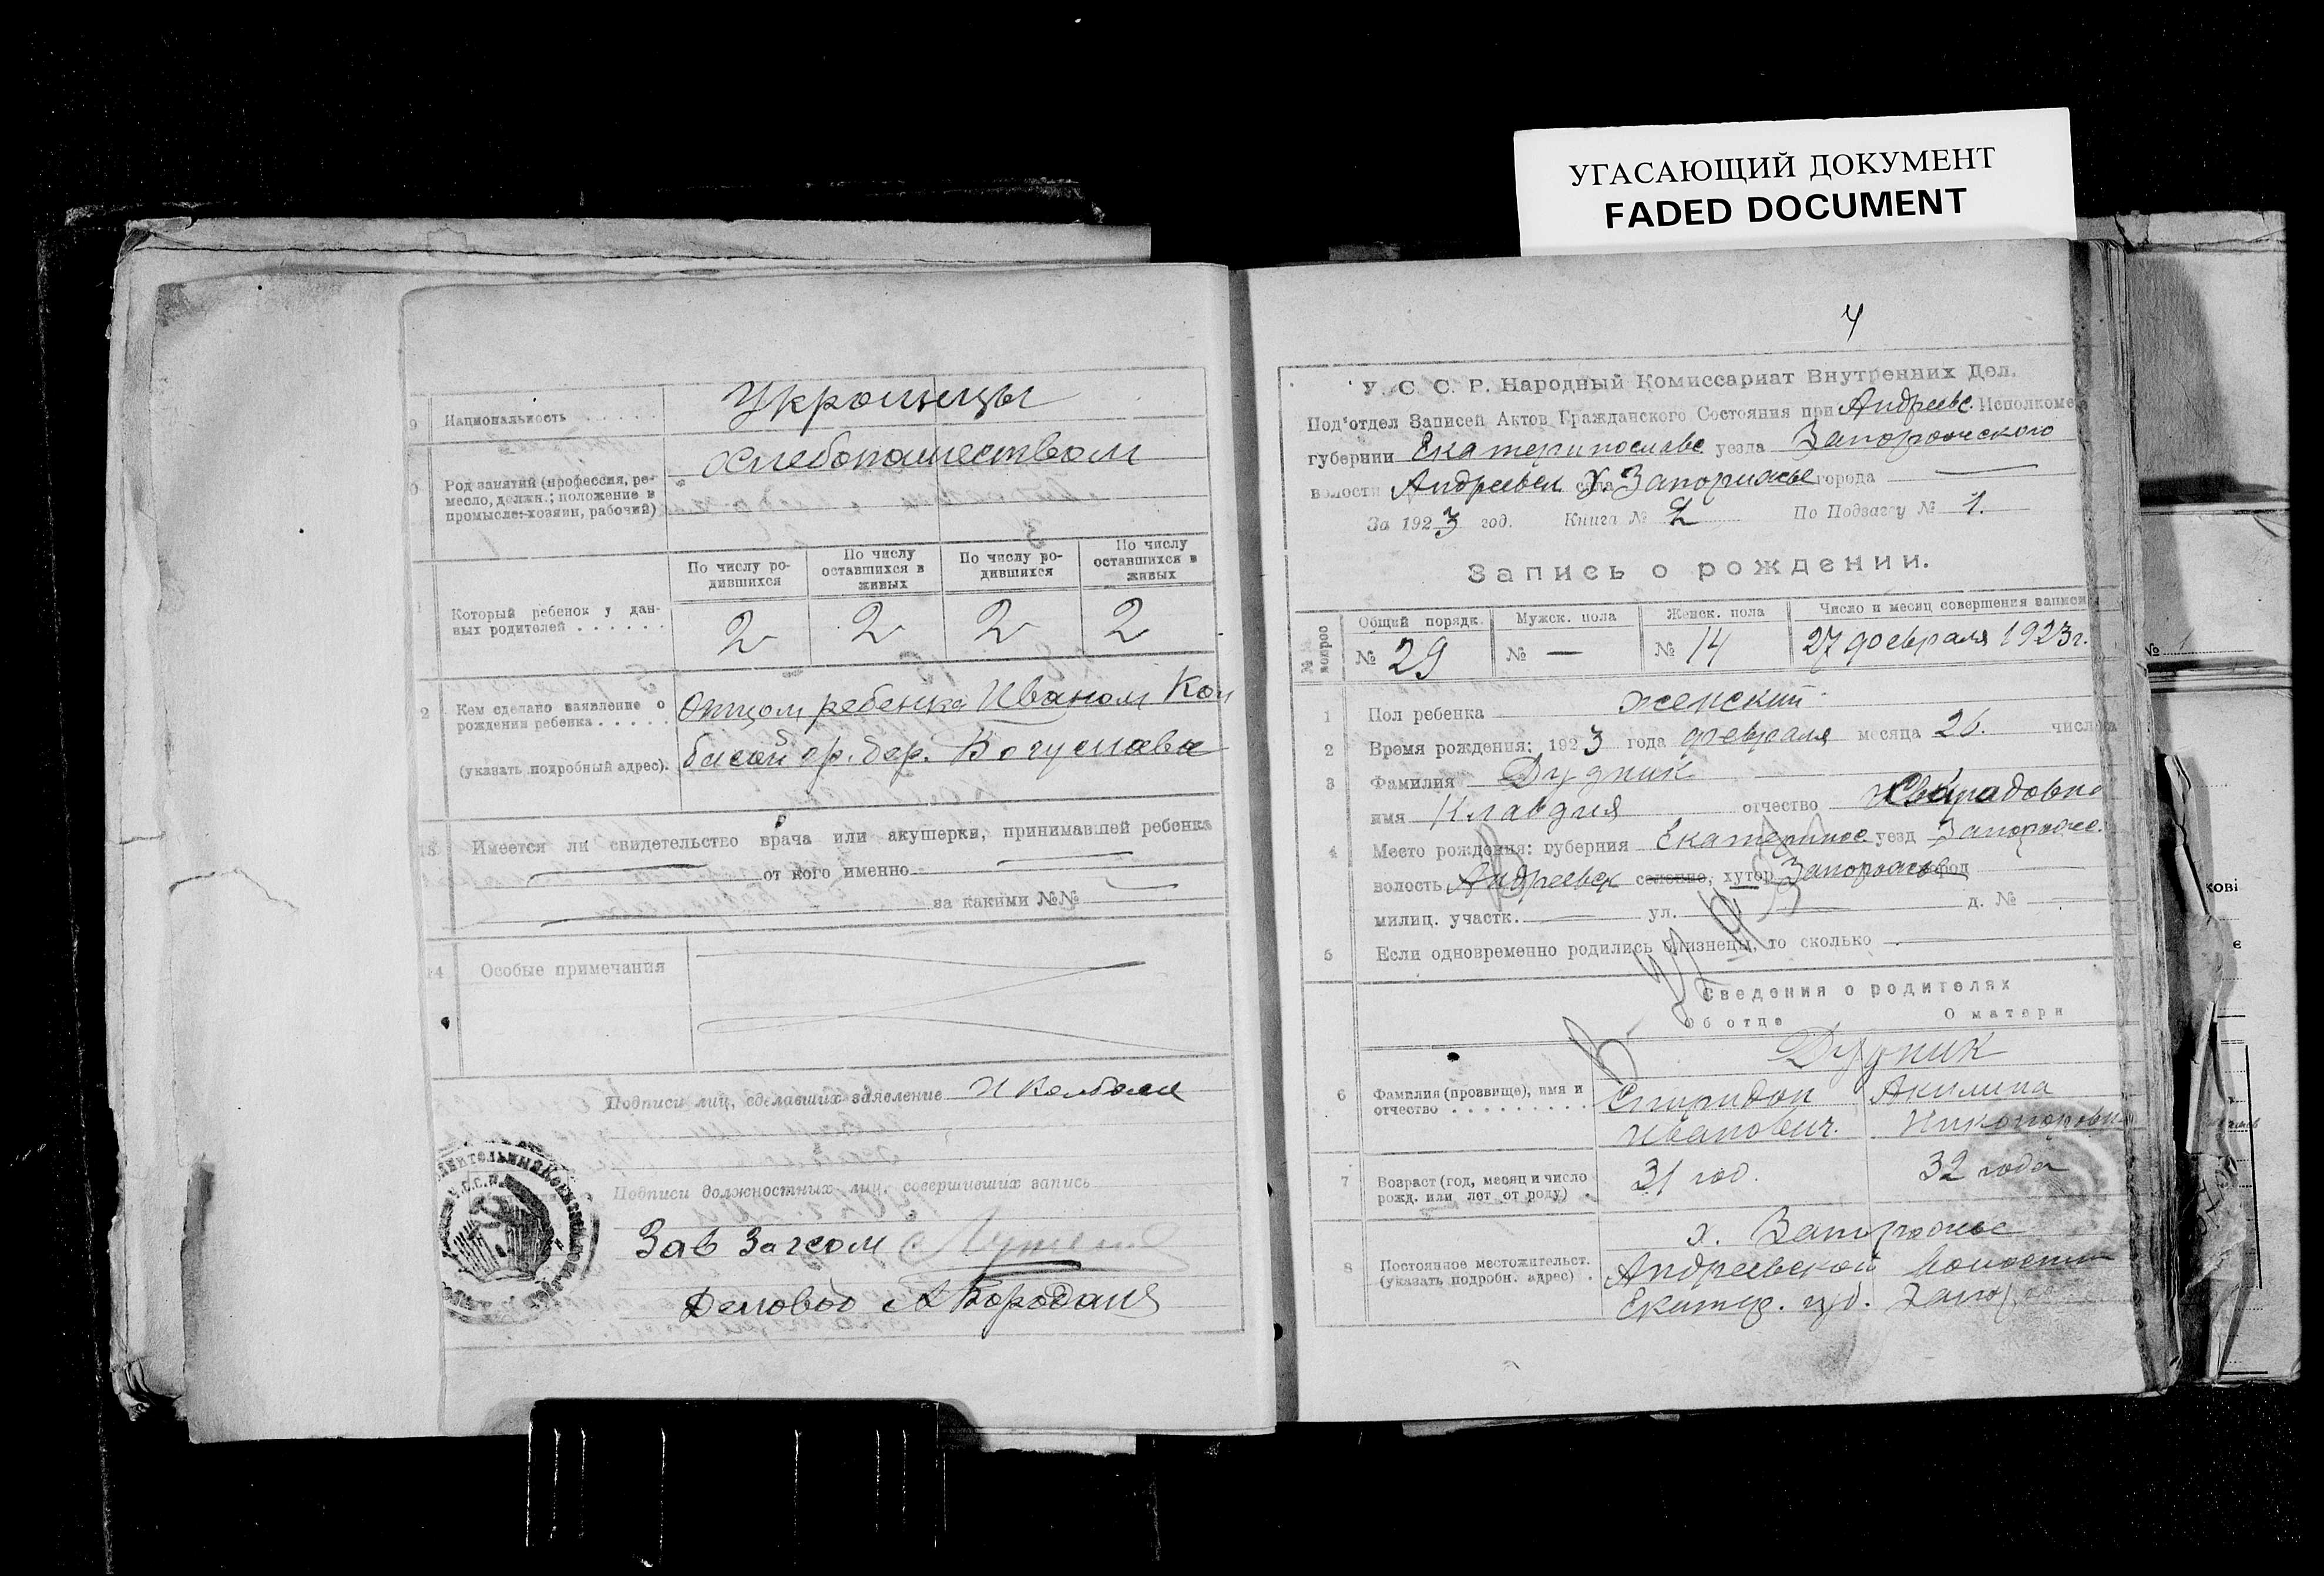 УГАСАЮЩИЙ ДОКУМЕНТ
FADED DOCUMENT
9 Национальность
Украинцы
Род занятий (профессия, ре-
месло, должн.; положение в
промысле:-хозяин, рабочий)
хлебопашеством
Который ребенок у дан-
ных родителей
По числу ро-
дившихся
По числу
оставшихся в
живых
По числу ро-
дившихся
По числу
оставшихся в
живых
2 2 2 2
2 Кем сделано заявление о
рождении ребенка
(указать подробный адрес).
Отцом ребенка Иваном
дер. Богуславка
13 Имеется ли свидетельство врача или акушерки, принимавшей ребенка
от кого именно
за какими №№
14 Особые примечания
Подписи лиц, сделавших заявление
Подписи должностных лиц, совершивших запись
Зав Загсом
Деловод А Бородань
4
У. С. С. Р. Народный Комиссариат Внутренних Дел.
Под'отдел Записей Актов Гражданского Состояния при Андреевс. Исполкоме
губернии Екатеринославс уезда Запорожского
волости Андреевск села Х. Запорижье города —
За 1923 год. Книга № По Подзагсу № 1.
Запись о рождении.
№ вопрос
Общий порядк. Мужск. пола Женск. пола Число и месяц совершения записи
№ 29 № — № 14 27 февраля 1923 г.
1 Пол ребенка женский
2 Время рождения: 1923 года февраля месяца 26. числа
3 Фамилия Дудник
имя Клавдия отчество
4 Место рождения: губерния Екатеринос уезд Запорожс.
волость Андреевск селение, хутор Запорожье город
милиц. участк. — ул. — д. № —
5 Если одновременно родились близнецы, то сколько —
Сведения о родителях
Об отце О матери
Дудник
6 Фамилия (прозвище), имя и
отчество
Спиридон Акилина
Иванович. Никоноровн
7 Возраст (год, месяц и число
рожд. или лет от роду)
31 год. 32 года
8 Постоянное местожительст.
(указать подробн. адрес)
х. Запорожье
Андреевской волости
Екатер. губ.